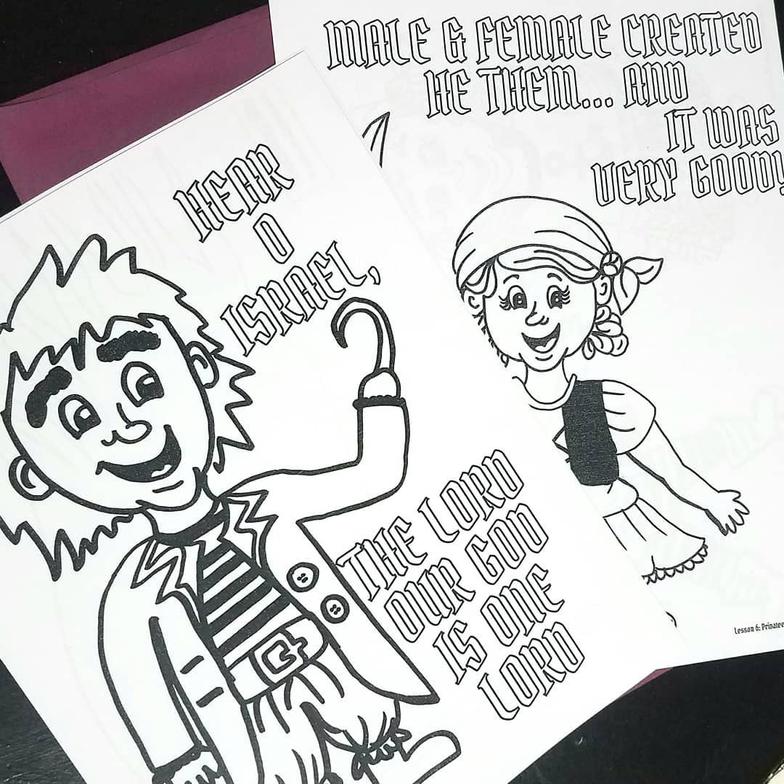 HEAR
O
ISRAEL,
THE LORD
OUR GOD
IS ONE
LORD
MALE & FEMALE CREATED
HE THEM... AND
IT WAS
VERY GOOD!
Lesson 6: